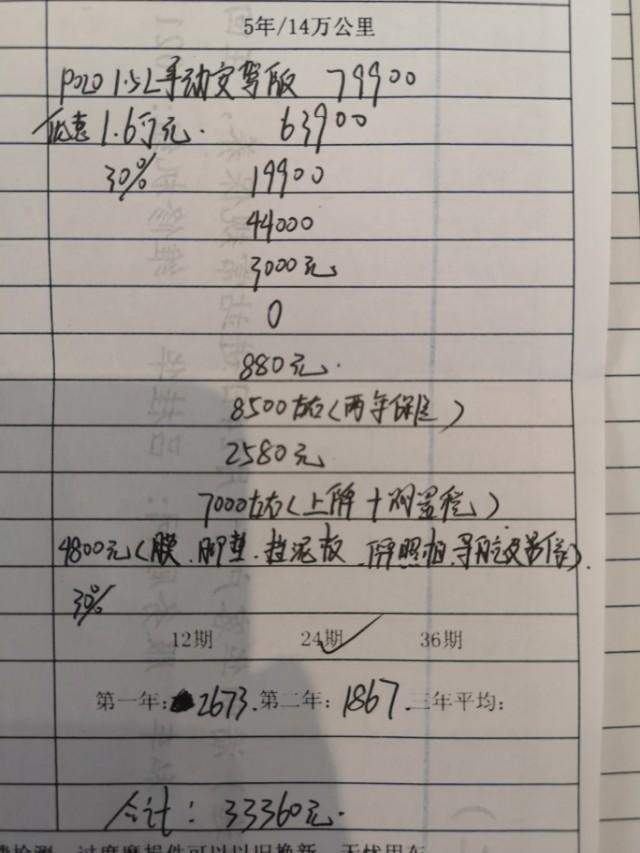 5年/14万公里
POLO 1.5L手动安驾版 79900
优惠1.6万元. 63900
30% 19900
44000
3000元
0
880元.
8500左右(两年保险)
2580元
7000左右(上牌+购置税)
4800元(膜.脚垫.挡泥板.牌照框.导航
30%
12期 24期 36期
第一年: 2673. 第二年: 1867. 三年平均:
合计: 33360元.
过度磨损件可以以旧换新 无忧用车